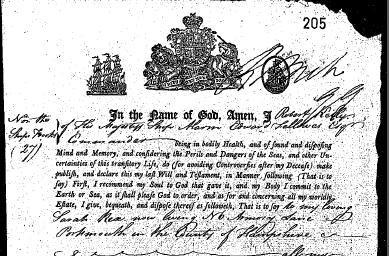 205
In the Name of God, Amen, I Robert
of His Majestys Ship Edward Esqr
Now the
Ship
(27)
Commander
being in bodily Health, and of sound and disposing
Mind and Memory, and considering the Perils and Dangers of the Seas, and other Un-
certainties of this transitory Life, do (for avoiding Controversies after my Decease) make
publish, and declare this my last Will and Testament, in Manner, following (That is to
say) First, I recommend my Soul to God that gave it, and my Body I commit to the
Earth or Sea, as it shall please God to order, and as for and concerning all my worldly
Estate, I give, bequeath, and dispose thereof as followeth, That is to say to my loving
Sarah now living No 6 Lane
Portsmouth in the County of Hampshire